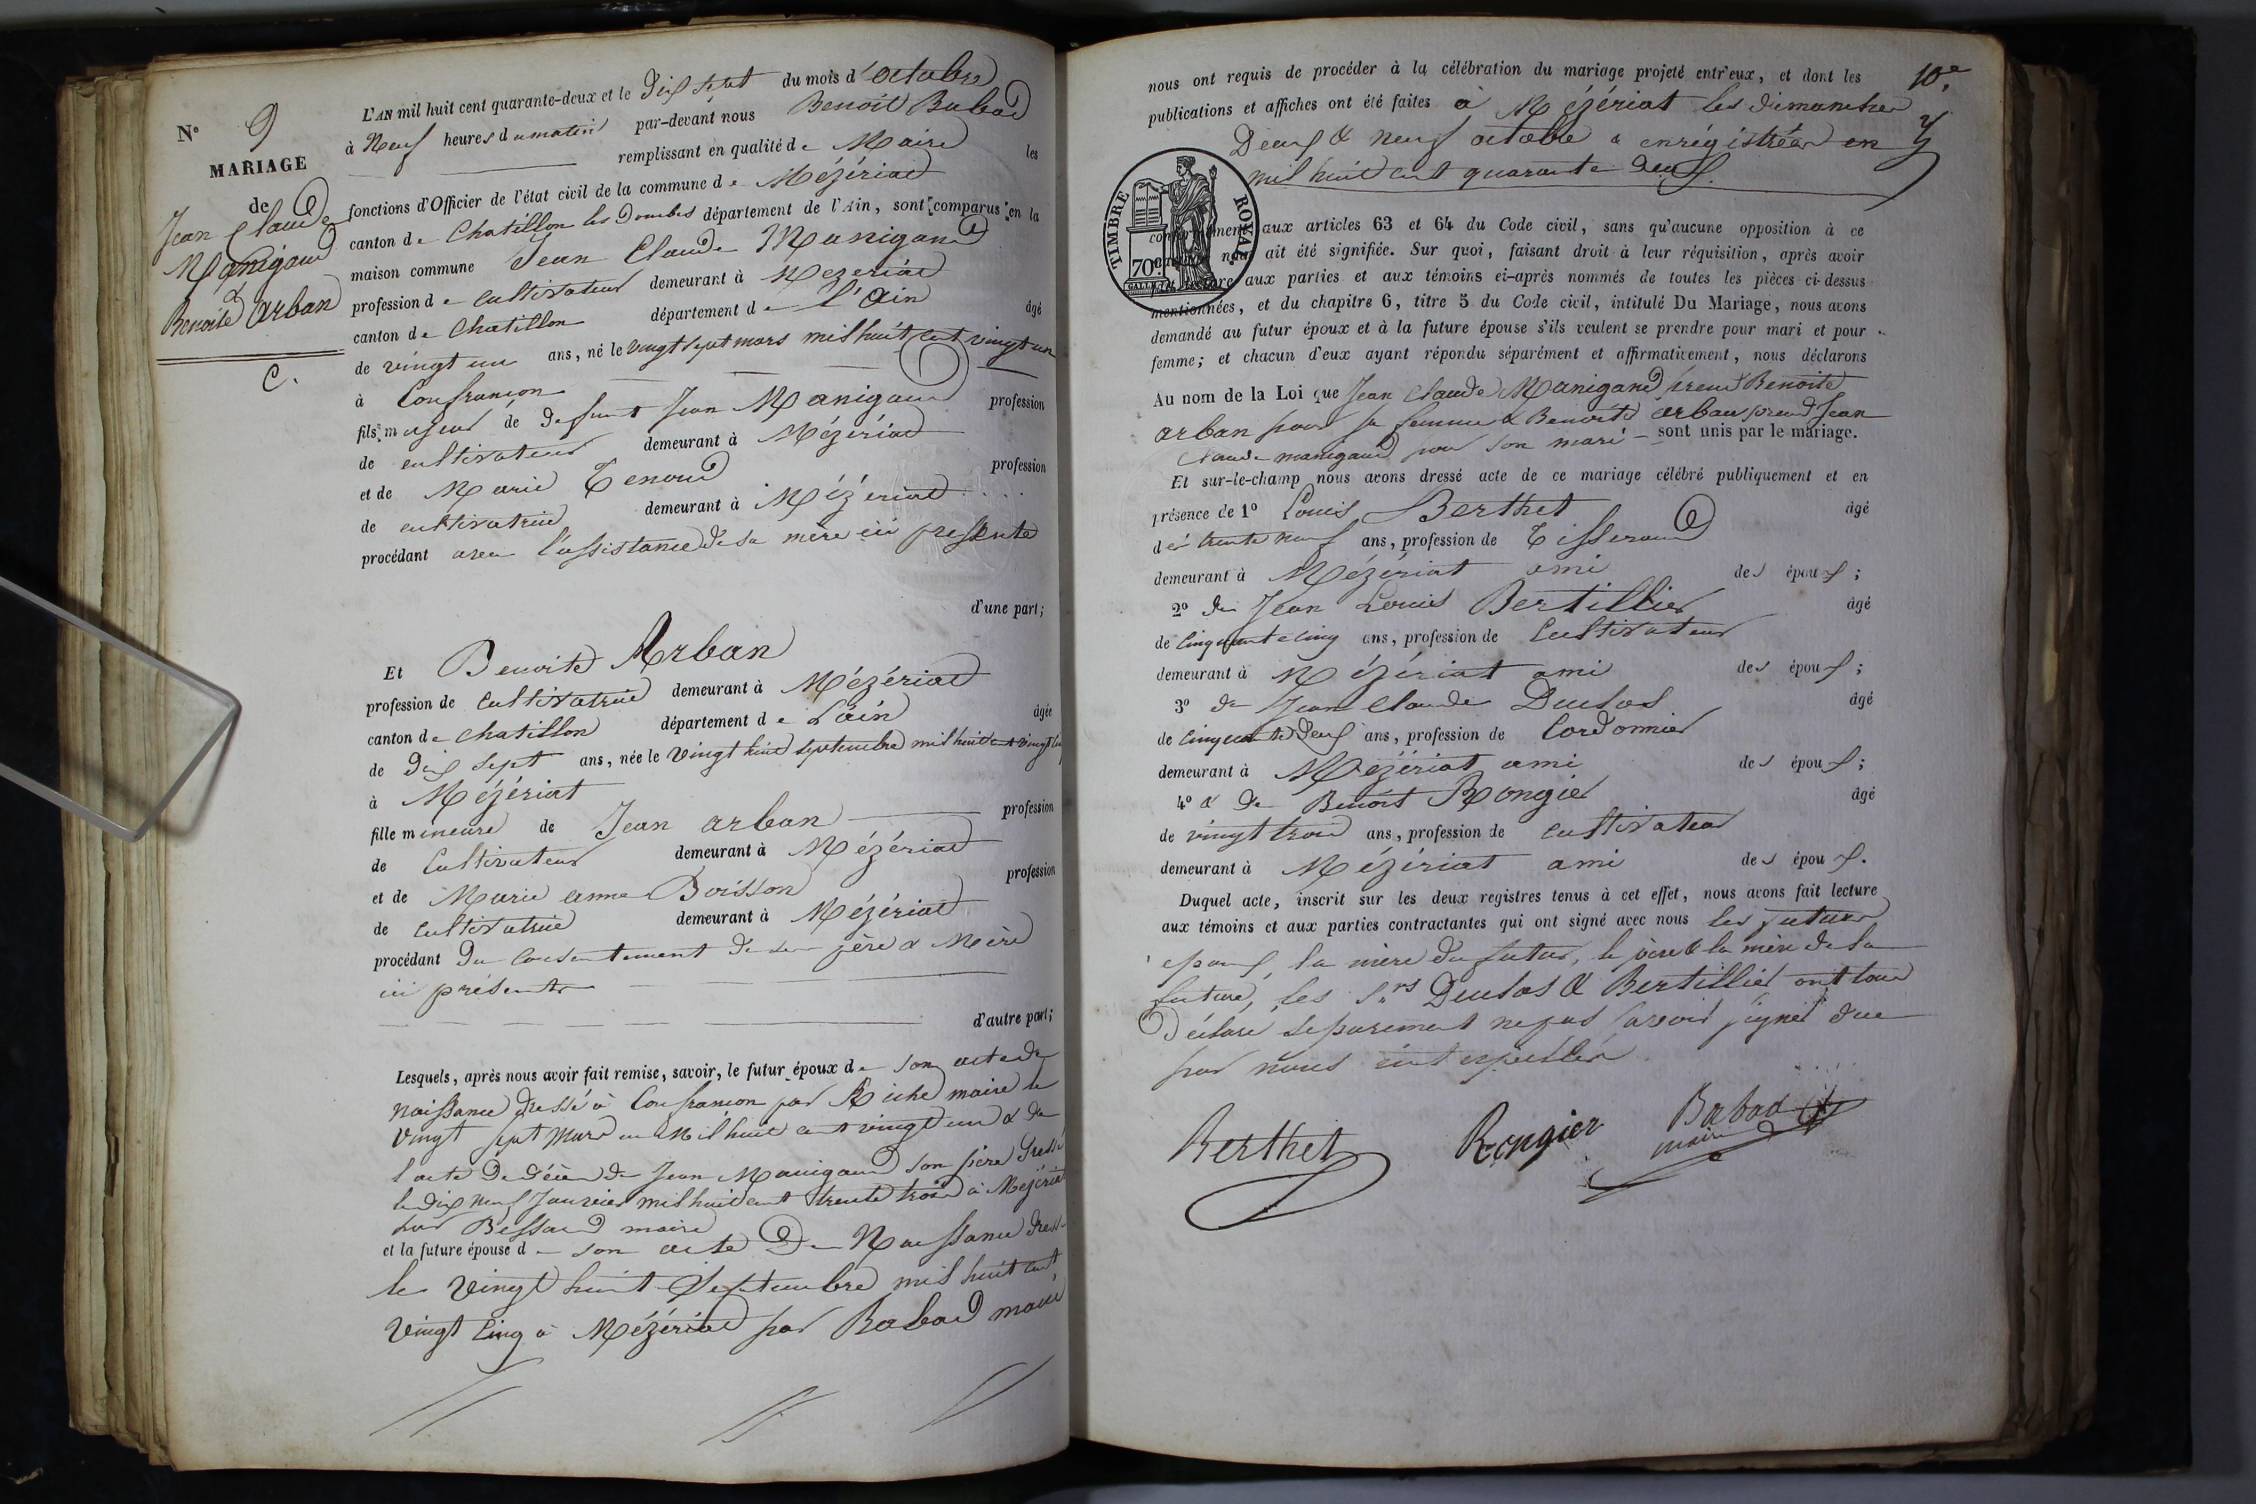 N° 9
MARIAGE
de
Jean Claude
Manigand
&
Benoite Arban
C.
L'AN mil huit cent quarante-deux et le dix sept du mois d'octobre
à Neuf heures du matin par-devant nous Benoit Babad
remplissant en qualité de Maire les
fonctions d'Officier de l'état civil de la commune de Mézériat
canton de Chatillon les Dombes département de l'Ain, sont comparus en la
maison commune Jean Claude Manigand
profession de cultivateur demeurant à Mezeriat
canton de Chatillon département de L'Ain âgé
de vingt un ans, né le vingt sept mars mil huit cent vingt un
à Confrancon
fils majeur de defunt Jean Manigand profession
de cultivateur demeurant à Mézériat
et de Marie Tenoud profession
de cultivatrice demeurant à Mézériat
procédant avec l'assistance de sa mère ici presente
d'une part;
Et Benoite Arban
profession de cultivatrice demeurant à Mézériat
canton de chatillon département de L'ain âgée
de dix sept ans, née le vingt huit septembre mil huit cent vingt cinq
à Mézériat
fille mineure de Jean arban profession
de Cultivateur demeurant à Mézériat
et de Marie anne Boisson profession
de cultivatrice demeurant à Mézériat
procédant du consentement de ses père & Mère
ici présents
d'autre part;
Lesquels, après nous avoir fait remise, savoir, le futur époux de son acte de
naissance dressé à Confrancon par Riche maire le
vingt sept Mars mil huit cent vingt un & de
l'acte de décès de Jean Manigand son père dressé
le dix neuf Janvier mil huit cent trente trois à Mézériat
par Bessard maire
et la future épouse de son acte de Naissance dressé
le vingt huit Septembre mil huit cent
vingt cinq à Mézériat par Babad maire
10e
nous ont requis de procéder à la célébration du mariage projeté entr'eux, et dont les
publications et affiches ont été faites à Mézériat les dimanches
Deux & neuf octobre & enrégistrées en
mil huit cent quarante deux.
TIMBRE ROYAL
70c.
conformément aux articles 63 et 64 du Code civil, sans qu'aucune opposition à ce
mariage nous ait été signifiée. Sur quoi, faisant droit à leur réquisition, après avoir
fait lecture aux parties et aux témoins ci-après nommés de toutes les pièces ci-dessus
mentionnées, et du chapitre 6, titre 5 du Code civil, intitulé Du Mariage, nous avons
demandé au futur époux et à la future épouse s'ils veulent se prendre pour mari et pour
femme; et chacun d'eux ayant répondu séparément et affirmativement, nous déclarons
Au nom de la Loi que Jean Claude Manigand prend Benoite
arban pour sa femme & Benoite arban prend Jean
Claude manigand pour son mari sont unis par le mariage.
Et sur-le-champ nous avons dressé acte de ce mariage célébré publiquement et en
présence de 1° Louis Berthet âgé
de trente neuf ans, profession de Tisserand
demeurant à Mézériat ami des époux;
2° de Jean Louis Bertillier âgé
de Cinquante cinq ans, profession de Cultivateur
demeurant à Mézériat ami des époux;
3° de Jean Claude Duclos âgé
de cinquante deux ans, profession de Cordonnier
demeurant à Mézériat ami des époux;
4° & de Benoit Rongier âgé
de vingt trois ans, profession de cultivateur
demeurant à Mézériat ami des époux.
Duquel acte, inscrit sur les deux registres tenus à cet effet, nous avons fait lecture
aux témoins et aux parties contractantes qui ont signé avec nous les futurs
epoux, la mère du futur, le père & la mère de la
future, les Srs Duclos & Bertillier ont tous
Déclaré séparement ne pas savoir signer due
par nous interpellés
Berthet Rongier Babad
maire